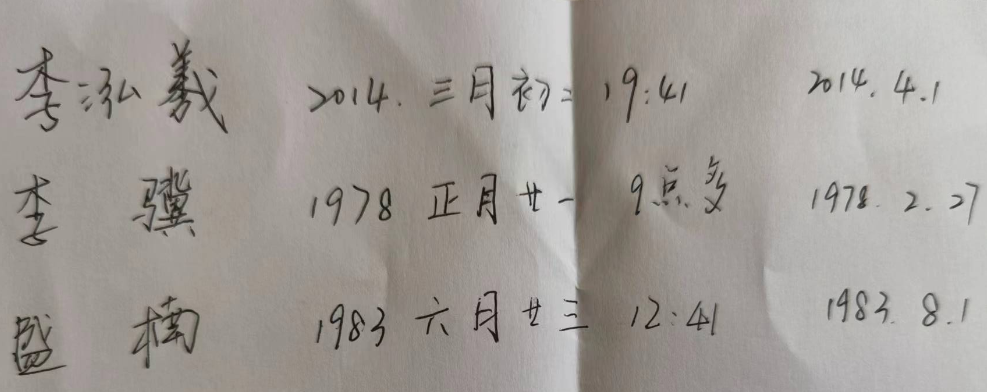 李泓羲 2014.三月初二 19:41 2014.4.1
李骥 1978 正月廿一 9点多 1978.2.27
盛楠 1983 六月廿三 12:41 1983.8.1